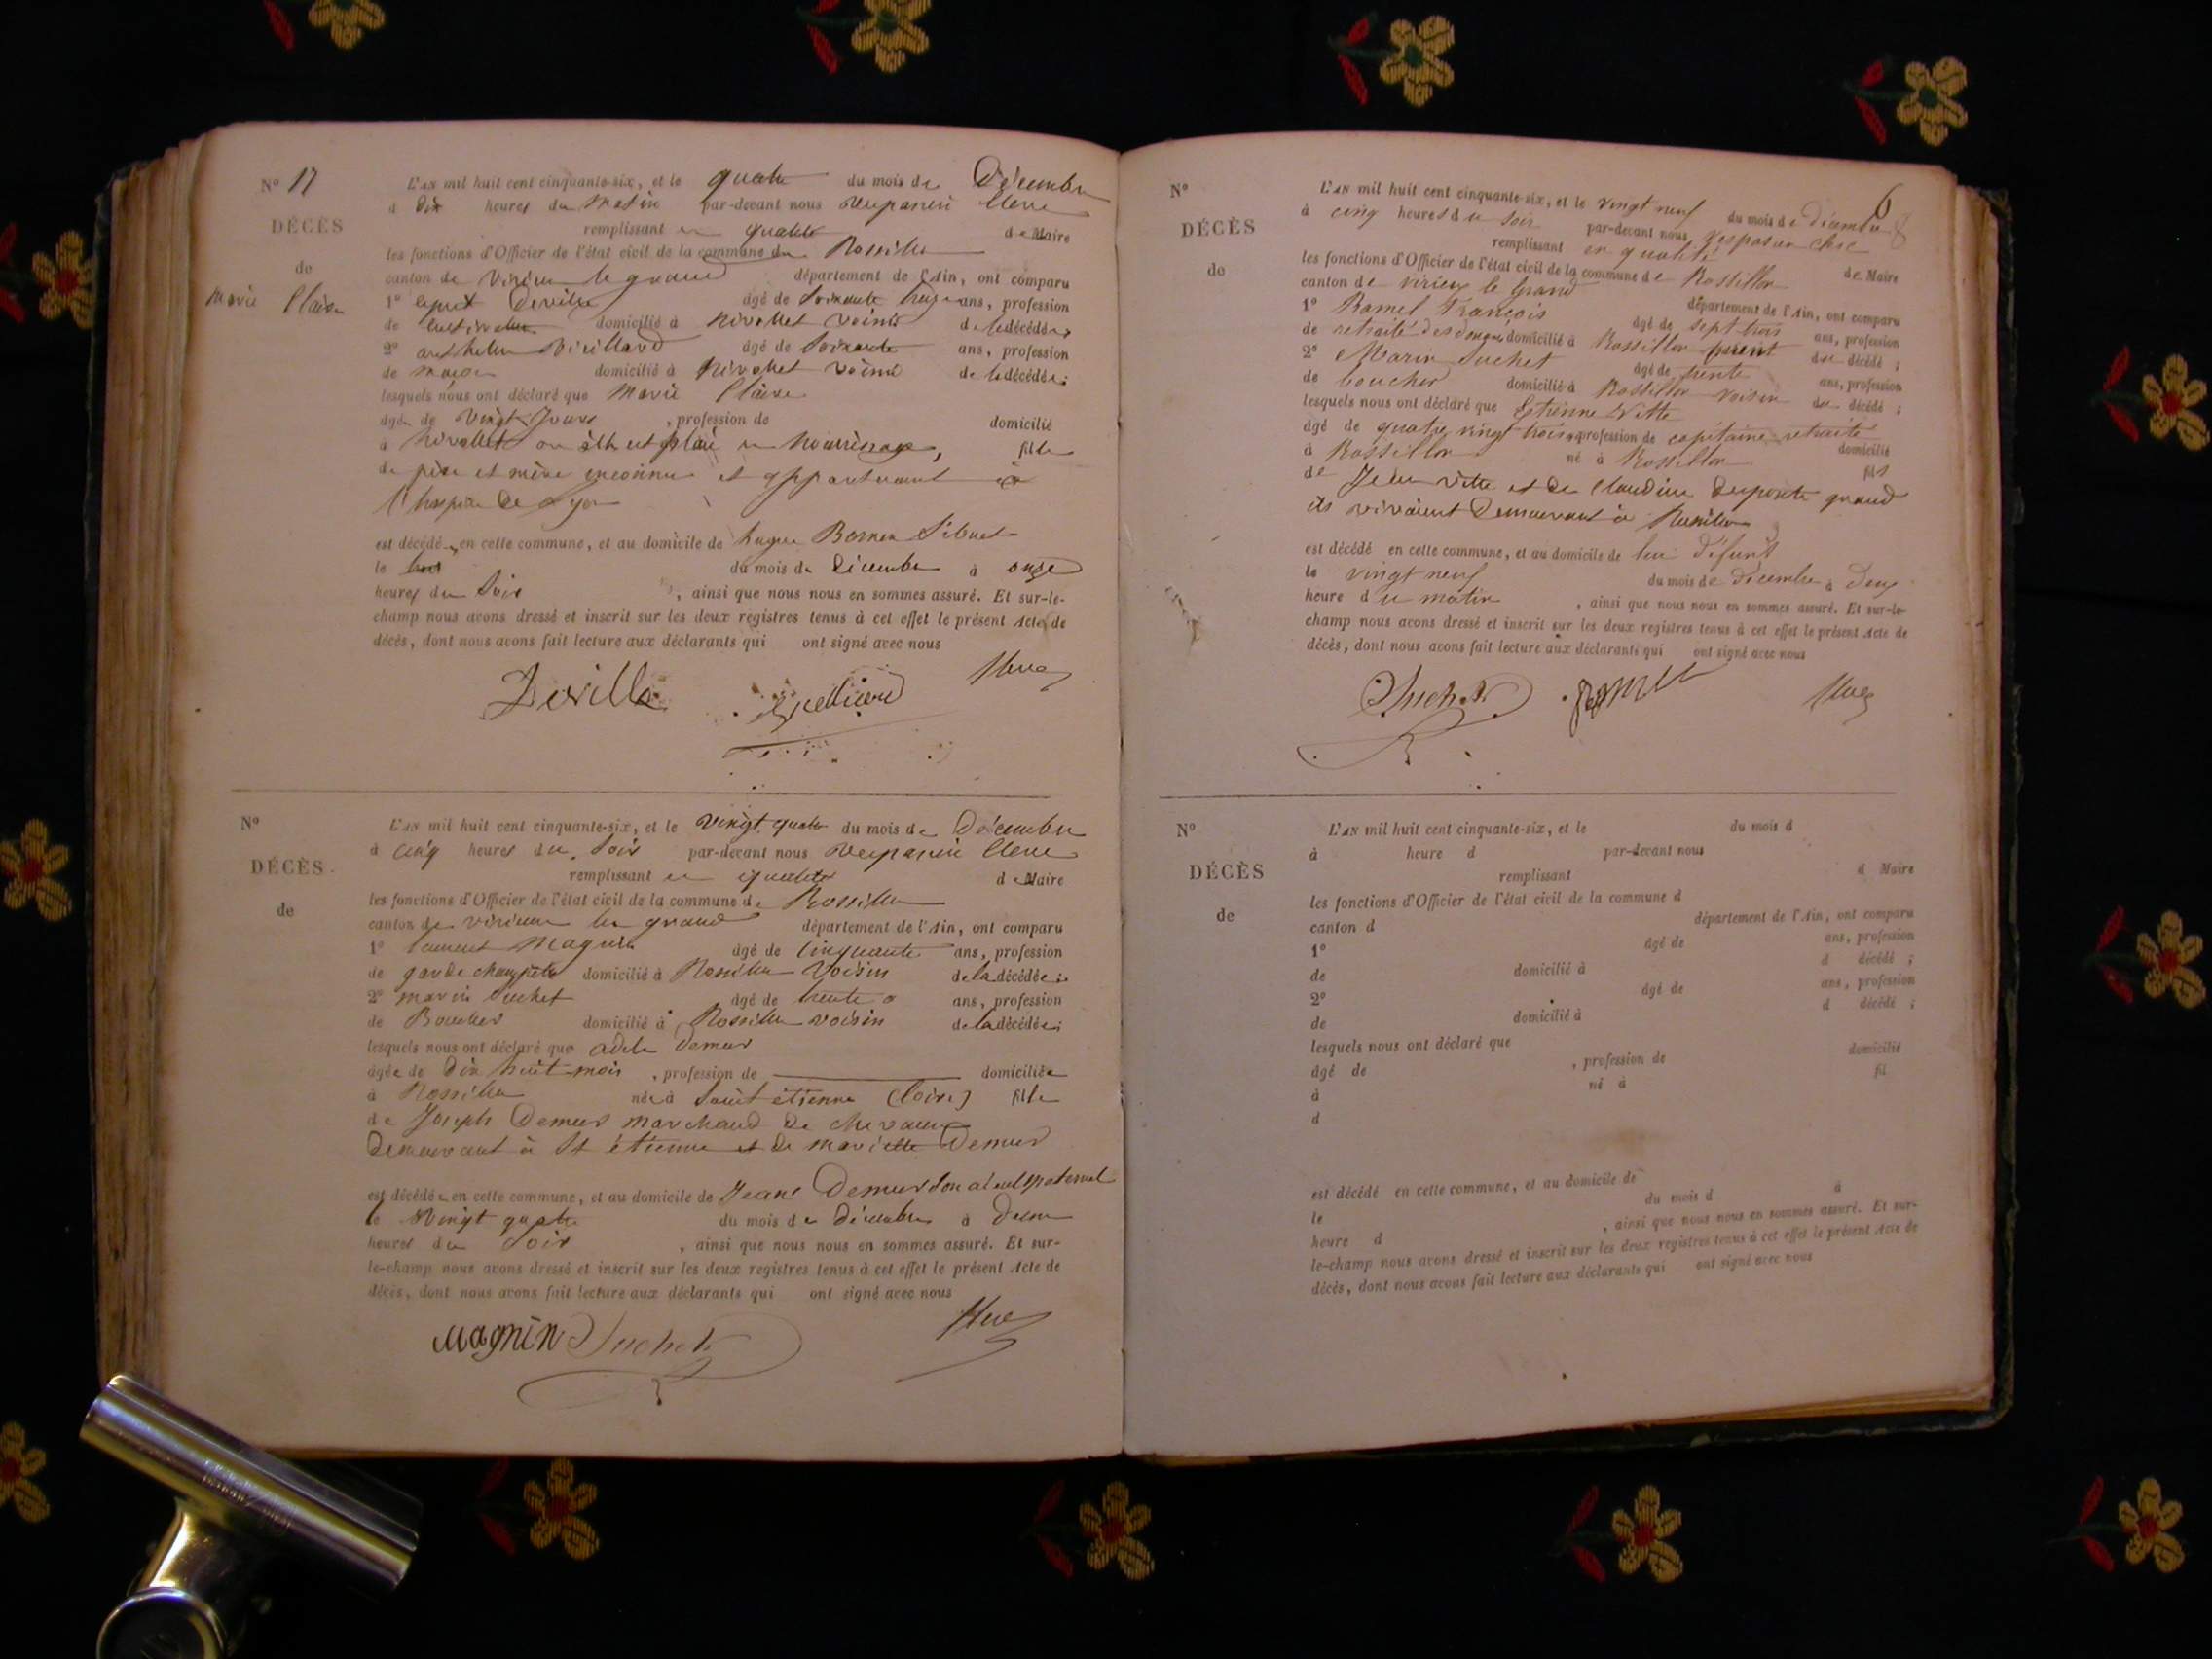 N° 17
DÉCÈS
de
Marie Claire
L'AN mil huit cent cinquante-six, et le quatre du mois de Décembre
à dix heures du matin par-devant nous Clerc
remplissant en qualité de Maire
les fonctions d'Officier de l'état civil de la commune de Rossillon
canton de virieu le grand département de l'Ain, ont comparu
1° Deville âgé de Soixante ans, profession
de domicilié à Nivollet voisin de la décédée;
2° anthelme Vieillard âgé de Soixante ans, profession
de domicilié à Nivollet voisin de la décédée;
lesquels nous ont déclaré que Marie Claire
âgée de Vingt Jours , profession de domicilié
à Nivollet ou elle est placé en Nourrissage, fille
de père et mère inconnu et appartenant à
l'hospice de Lyon
est décédée en cette commune, et au domicile de
le du mois de Décembre à onze
heures du Soir , ainsi que nous nous en sommes assuré. Et sur-le-
champ nous avons dressé et inscrit sur les deux registres tenus à cet effet le présent Acte de
décès, dont nous avons fait lecture aux déclarants qui ont signé avec nous
Deville
N°
DÉCÈS
de
L'AN mil huit cent cinquante-six, et le vingt quatre du mois de Décembre
à cinq heures du Soir par-devant nous Clerc
remplissant en qualité de Maire
les fonctions d'Officier de l'état civil de la commune de Rossillon
canton de virieu le grand département de l'Ain, ont comparu
1° Laurent Magnin âgé de Cinquante ans, profession
de garde champêtre domicilié à Rossillon Voisin de la décédée;
2° marin Suchet âgé de trente ans, profession
de Boucher domicilié à Rossillon voisin de la décédée;
lesquels nous ont déclaré que adele Demeur
âgée de Dix huit mois , profession de domiciliée
à Rossillon née à Saint étienne (Loire) fille
de Joseph Demeur marchand de chevaux
Demeurant à St étienne et de mariette Demeur
est décédée en cette commune, et au domicile de Jean Demeur son aieul paternel
le Vingt quatre du mois de décembre à Deux
heures du Soir , ainsi que nous nous en sommes assuré. Et sur-
le-champ nous avons dressé et inscrit sur les deux registres tenus à cet effet le présent Acte de
décès, dont nous avons fait lecture aux déclarants qui ont signé avec nous
Magnin Suchet
6
N°
DÉCÈS
de
L'AN mil huit cent cinquante-six, et le vingt neuf du mois de décembre
à cinq heures du soir par-devant nous clerc
remplissant en qualité de Maire
les fonctions d'Officier de l'état civil de la commune de Rossillon
canton de virieu le Grand département de l'Ain, ont comparu
1° Ramel François âgé de sept trois ans, profession
de retraité des domicilié à Rossillon parent du décédé ;
2° Marin Suchet âgé de trente ans, profession
de boucher domicilié à Rossillon voisin du décédé ;
lesquels nous ont déclaré que Etienne Vitte
âgé de quatre vingt trois profession de capitaine retraité domicilié
à Rossillon né à Rossillon fils
de Jean vitte et de Claudine Deporte quand
ils vivaient Demeurant à Rossillon
est décédé en cette commune, et au domicile de lui défunt
le vingt neuf du mois de décembre à deux
heure du matin , ainsi que nous nous en sommes assuré. Et sur-le-
champ nous avons dressé et inscrit sur les deux registres tenus à cet effet le présent Acte de
décès, dont nous avons fait lecture aux déclarants qui ont signé avec nous
Suchet Ramel
N°
DÉCÈS
de
L'AN mil huit cent cinquante-six, et le du mois d
à heure d par-devant nous
remplissant d Maire
les fonctions d'Officier de l'état civil de la commune d
canton d département de l'Ain, ont comparu
1° âgé de ans, profession
de domicilié à d décédé ;
2° âgé de ans, profession
de domicilié à d décédé ;
lesquels nous ont déclaré que
âgé de , profession de domicilié
à né à fil
d
est décédé en cette commune, et au domicile de
le du mois d à
heure d , ainsi que nous nous en sommes assuré. Et sur-
le-champ nous avons dressé et inscrit sur les deux registres tenus à cet effet le présent Acte de
décès, dont nous avons fait lecture aux déclarants qui ont signé avec nous